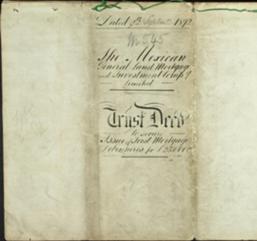 Dated 9th September 1892
No 545
The Mexican
General Land Mortgage
and Investment Compy
Limited
Trust Deed
to secure
Issue of First Mortgage
Debentures for